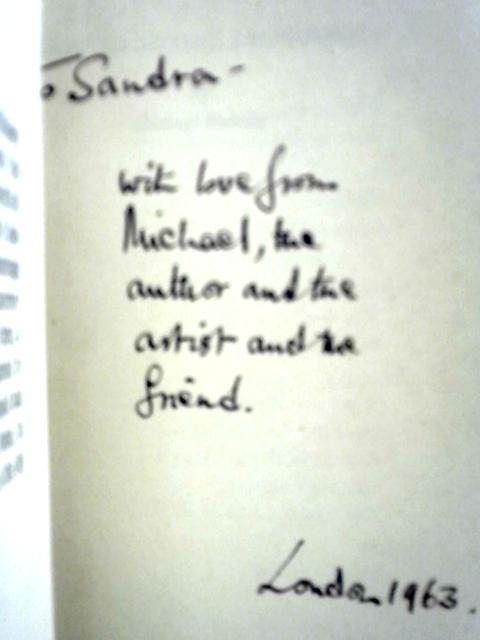 To Sandra -
with love from
Michael, the
author and the
artist and the
friend.
London 1963.